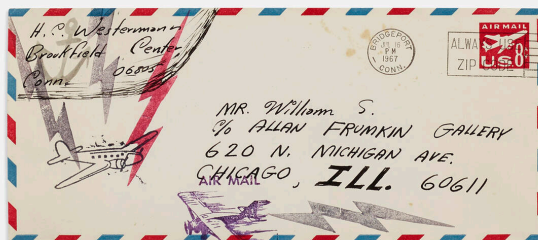 H.C. Westermann
Brookfield Center,
Conn. 06805
BRIDGEPORT
JUL 18
PM
1967
CONN.
ALWAYS USE
ZIP CODE
AIR MAIL
US 8¢
MR. William S.
C/O ALLAN FRUMKIN GALLERY
620 N. MICHIGAN AVE.
CHICAGO, ILL. 60611
AIR MAIL